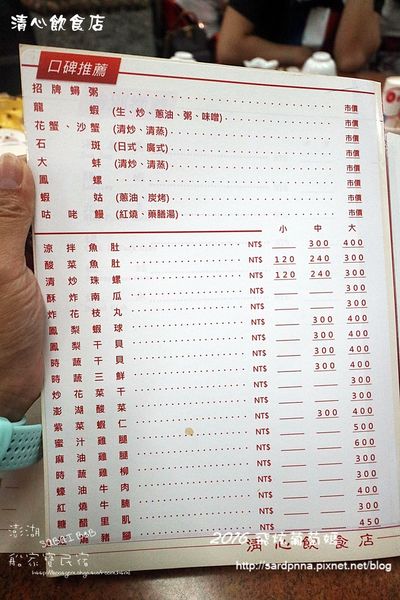 清心飲食店
口碑推薦
招牌蟳粥 市價
龍蝦 (生、炒、蔥油、粥、味噌) 市價
花蟹、沙蟹 (清炒、清蒸) 市價
石斑 (日式、廣式) 市價
大蚌 (清炒、清蒸) 市價
鳳螺 市價
蝦姑 (蔥油、炭烤) 市價
咕咾鰻 (紅燒、藥膳湯) 市價
小 中 大
涼拌魚肚 NT$ 300 400
酸菜魚肚 NT$ 120 240 300
清炒珠螺 NT$ 120 240 300
酥炸南瓜 NT$ 200
炸花枝丸 NT$ 300
鳳梨蝦球 NT$ 300 400
鳳梨干貝 NT$ 300 400
時蔬干貝 NT$ 300 400
時蔬三鮮 NT$ 300 400
炒花菜干 NT$ 300
澎湖酸菜 NT$ 300
紫菜蝦仁 NT$ 300 400
蜜汁雞腿 NT$ 500
麻油雞腿 NT$ 600
時蔬雞柳 NT$ 300
蠔油牛肉 NT$ 400
紅燒牛腩 NT$ 300
糖醋里肌 NT$ 300
豬腳 NT$ 450
清心飲食店
澎湖
船家寶民宿
2016
http://sardpnna.pixnet.net/blog